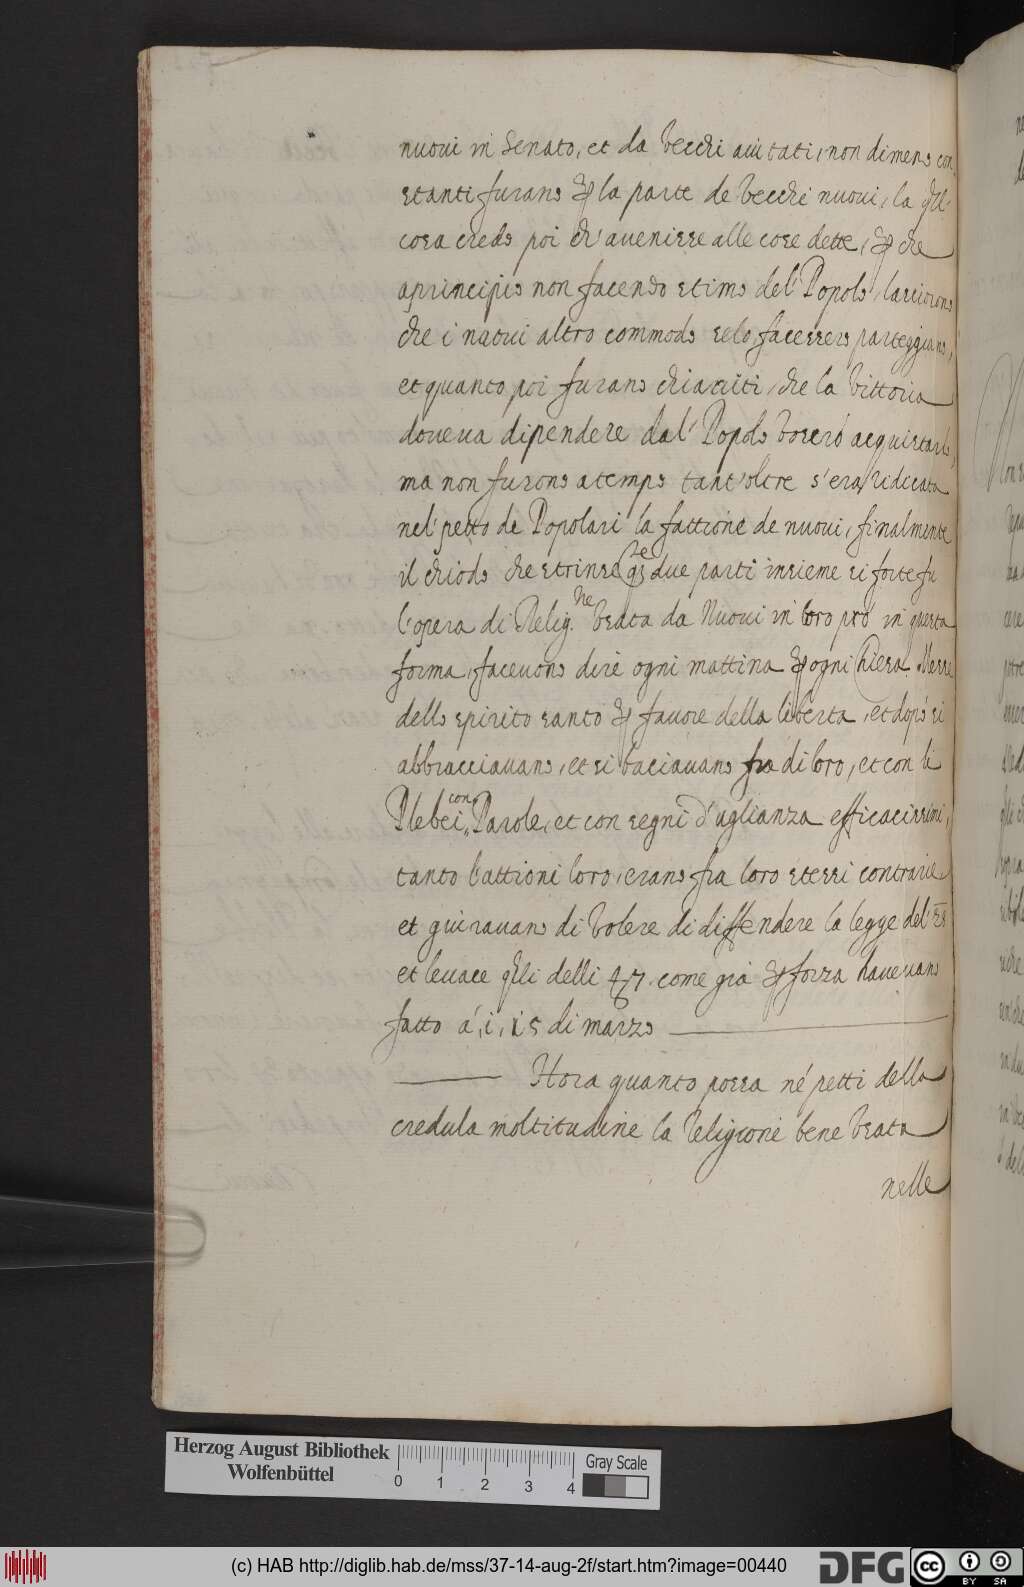 nuovi in Senato, et da Vecchi aiutati, non dimeno con
stanti furano p la parte de Vecchi nuovi, la qual
cosa credo poi ch'avenisse alle cose dette, p che
aprincipio non facendo stimo del Popolo, lasciorono
che i nuovi altro commodo se lo facessero parteggiano,
et quanto poi furano chiariti, che la Vittoria
doveva dipendere dal' Popolo voseró acquistarlo,
ma non furono atempo tant'oltre s'era ridicata
nel' petto de Popolari la fattione de nuovi, finalmente
il chiodo che strinse qste due parti insieme si forte fu
l'opera di Relig.ne usata da Nuovi in loro pró in questa
forma, facevono dire ogni mattina p ogni Chiesa Messe
dello spirito santo p favore della liberta, et dopo si
abbracciavano, et si baciavano fra di loro, et con li
Plebei, con Parole, et con segni d'uglianza efficacissimi,
tanto l'attioni loro, erano fra loro stessi contrarie
et giuravano di volere di diffendere la legge del' 28
et levare qlli delli 47. come già p forza havevano
fatto á, i, 15 di marzo
Hora quanto possa né petti della
credula moltitudine la Religione bene usata
nelle
Herzog August Bibliothek
Wolfenbüttel
0 1 2 3 4
Gray Scale
(c) HAB http://diglib.hab.de/mss/37-14-aug-2f/start.htm?image=00440
DFG
cc BY SA